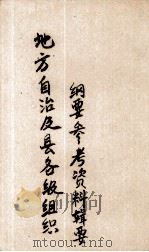 地方自治及县各级组织
纲要参考资料辑要